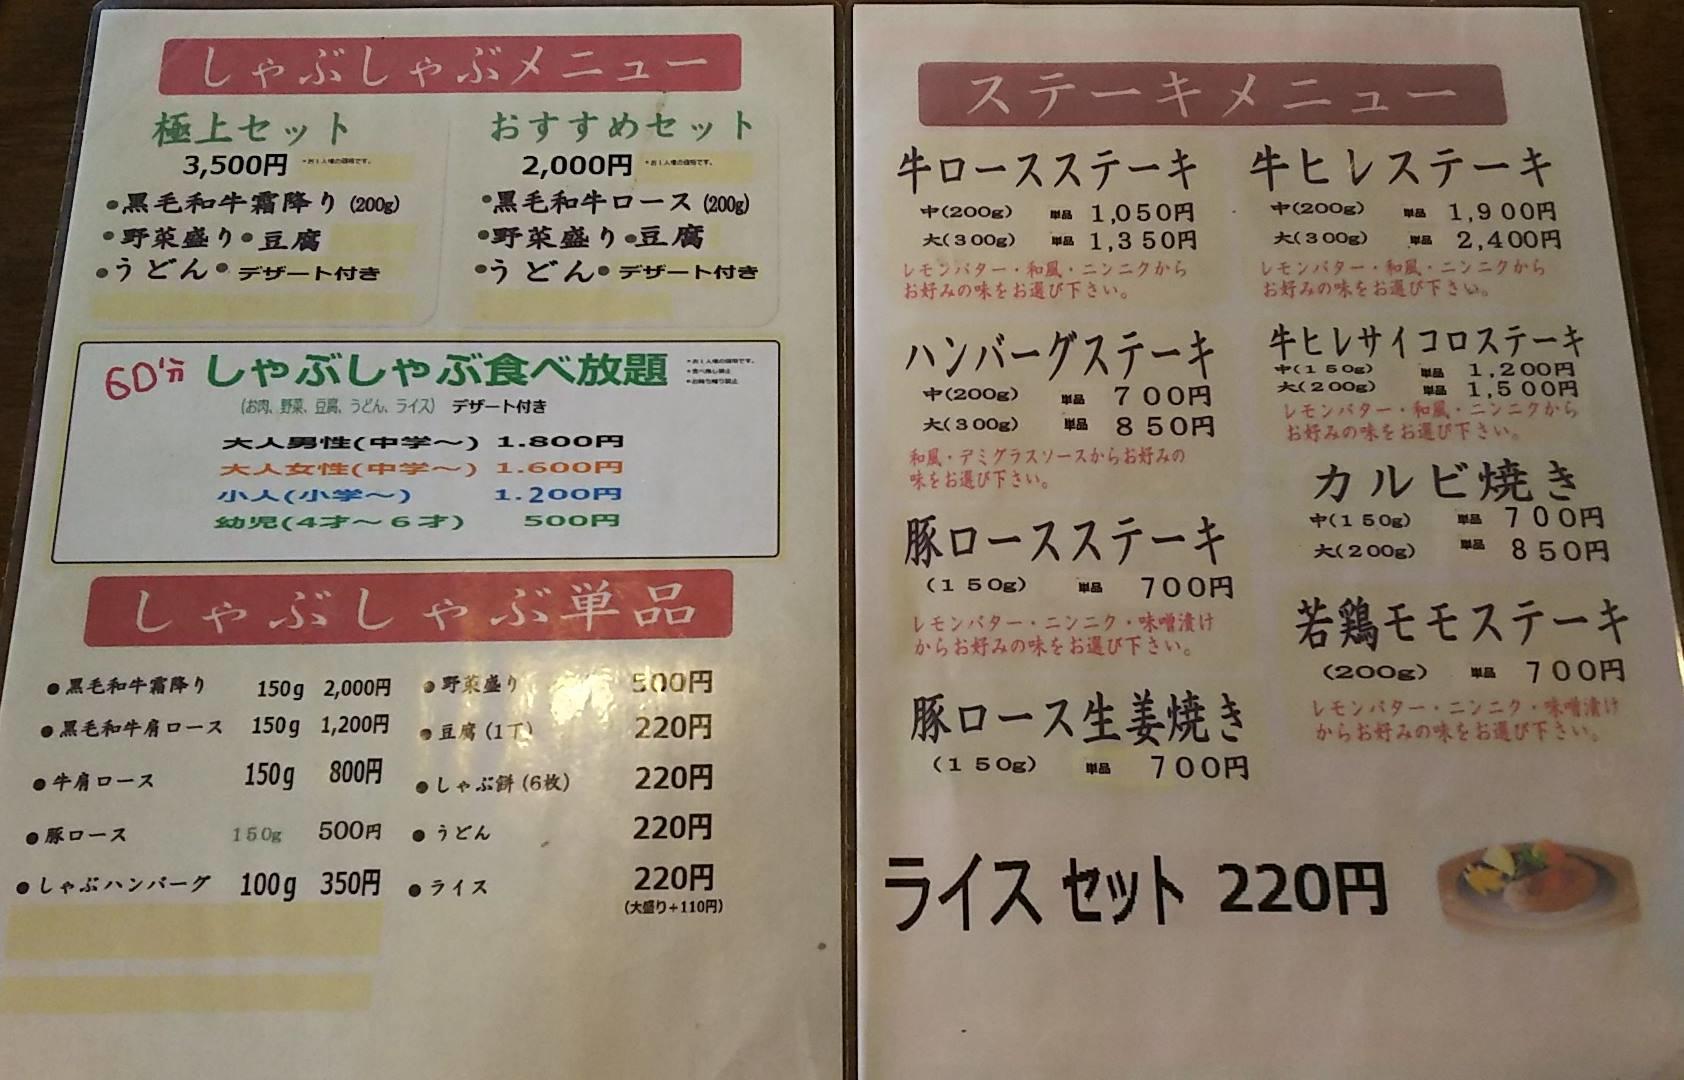 しゃぶしゃぶメニュー
極上セット
3,500円 *お1人様の価格です。
●黒毛和牛霜降り(200g)
●野菜盛り●豆腐
●うどん● デザート付き
おすすめセット
2,000円 *お1人様の価格です。
●黒毛和牛ロース(200g)
●野菜盛り●豆腐
●うどん● デザート付き
60分 しゃぶしゃぶ食べ放題
*お1人様の価格です。
(お肉、野菜、豆腐、うどん、ライス) デザート付き
大人男性(中学～) 1.800円
大人女性(中学～) 1.600円
小人(小学～) 1.200円
幼児(4才～6才) 500円
しゃぶしゃぶ単品
●黒毛和牛霜降り 150g 2,000円
●黒毛和牛肩ロース 150g 1,200円
●牛肩ロース 150g 800円
●豚ロース 150g 500円
●しゃぶハンバーグ 100g 350円
●野菜盛り 500円
●豆腐(1丁) 220円
●しゃぶ餅(6枚) 220円
●うどん 220円
●ライス 220円
(大盛り+110円)
ステーキメニュー
牛ロースステーキ
中(200g) 単品 1,050円
大(300g) 単品 1,350円
レモンバター・和風・ニンニクから
お好みの味をお選び下さい。
ハンバーグステーキ
中(200g) 単品 700円
大(300g) 単品 850円
和風・デミグラスソースからお好みの
味をお選び下さい。
豚ロースステーキ
(150g) 単品 700円
レモンバター・ニンニク・味噌漬け
からお好みの味をお選び下さい。
豚ロース生姜焼き
(150g) 単品 700円
牛ヒレステーキ
中(200g) 単品 1,900円
大(300g) 単品 2,400円
レモンバター・和風・ニンニクから
お好みの味をお選び下さい。
牛ヒレサイコロステーキ
中(150g) 単品 1,200円
大(200g) 単品 1,500円
レモンバター・和風・ニンニクから
お好みの味をお選び下さい。
カルビ焼き
中(150g) 単品 700円
大(200g) 単品 850円
若鶏モモステーキ
(200g) 単品 700円
レモンバター・ニンニク・味噌漬け
からお好みの味をお選び下さい。
ライスセット 220円